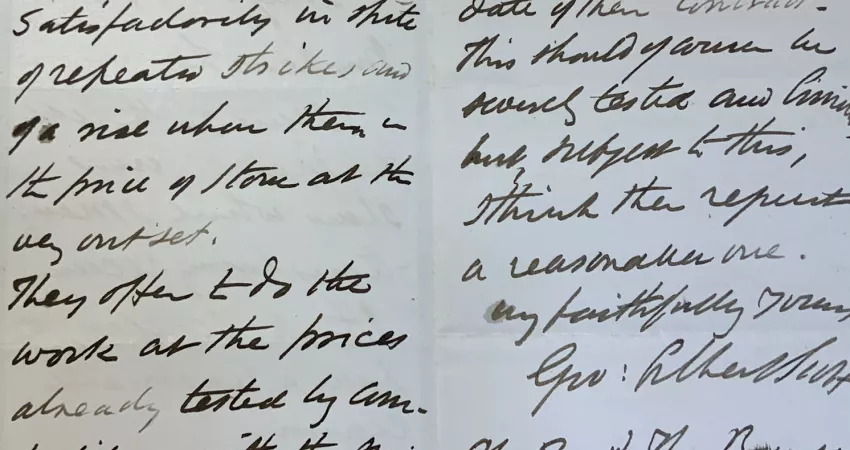 satisfactorily in spite
of repeated strikes and
of a rise when them in
the price of stone at the
very outset.
They offer to do the
work at the prices
already tested by com-
date of their contract.
This should of course be
severely tested and
but, subject to this,
I think their request
a reasonable one.
very faithfully yours
Geo: Gilbert Scott